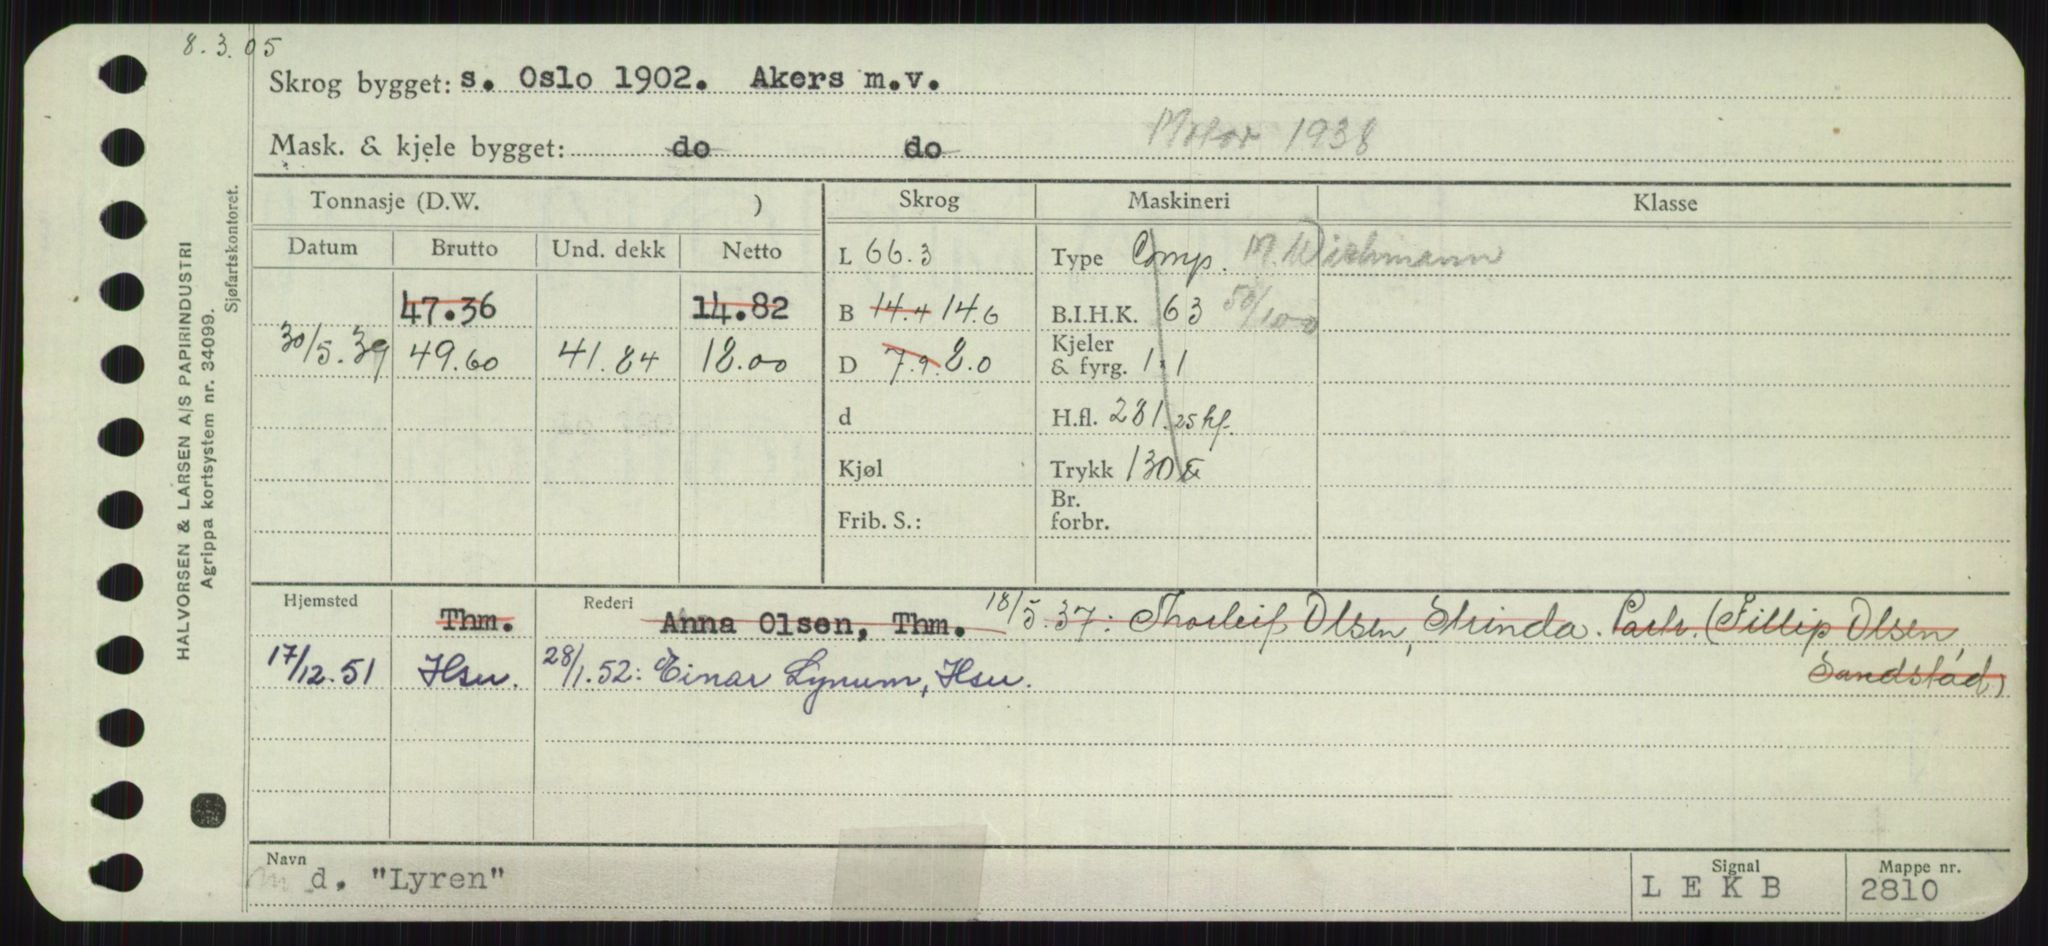 8.3.05
Skrog bygget: s. Oslo 1902. Akers m.v.
Mask. & kjele bygget: do do Motor 1938
Tonnasje (D.W. ) Skrog Maskineri Klasse
Datum Brutto Und. dekk Netto L 66.3 Type Comp. M. Wichmann
47.36 14.82 B 14.4 14.6 B.I.H.K. 63 50/100
30/5.39 49.60 41.84 18.00 D 7.9. 8.0 Kjeler & fyrg. 1.1
d H.fl. 281.25 hf.
Kjøl Trykk 130
Frib. S.: Br. forbr.
Hjemsted Rederi
Thm. Anna Olsen, Thm. 18/5.37: Thorleif Olsen, Strinda. Partr. (Fillip Olsen,
Sandstad)
17/12.51 Hsv. 28/1.52: Einar Lynum, Hsv.
Navn Signal Mappe nr.
m d. "Lyren" L E K B 2810
HALVORSEN & LARSEN A/S PAPIRINDUSTRI
Agrippa kortsystem nr. 34099.
Sjøfartskontoret.